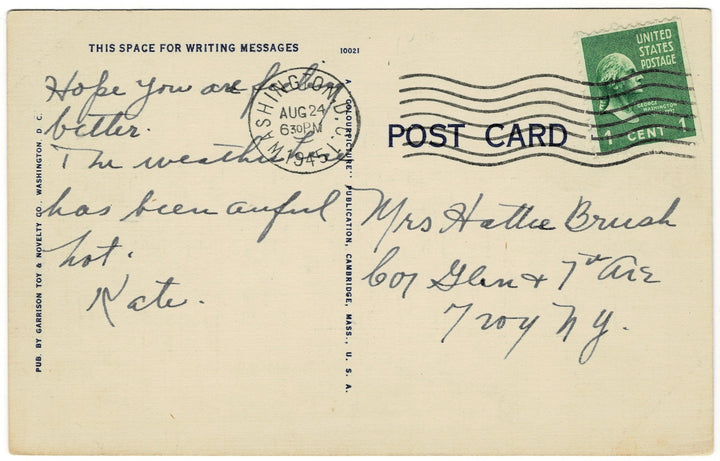 THIS SPACE FOR WRITING MESSAGES
10021
Hope you are feeling
better.
The weather here
has been awful
hot.
Kate.
PUB. BY GARRISON TOY & NOVELTY CO., WASHINGTON, D. C.
A "COLOURPICTURE" PUBLICATION, CAMBRIDGE, MASS., U. S. A.
WASHINGTON, D. C.
AUG 24
630 PM
1945
UNITED
STATES
POSTAGE
GEORGE
WASHINGTON
1 CENT 1
POST CARD
Mrs Hattie Brush
Cor Glen & 7th Ave
Troy N.Y.